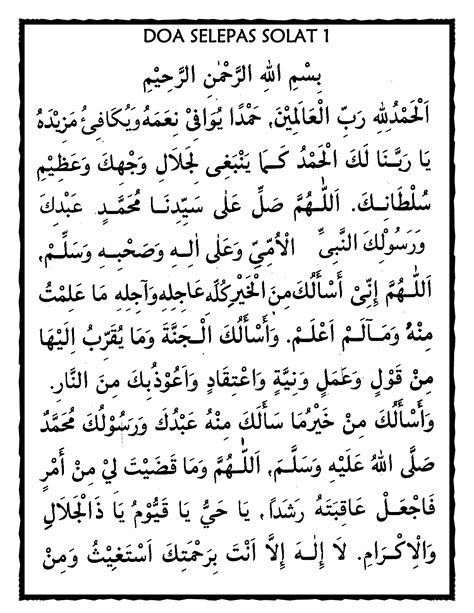 DOA SELEPAS SOLAT 1
بِسْمِ اللهِ الرَّحْمٰنِ الرَّحِيْمِ
اَلْحَمْدُلِلهِ رَبِّ الْعَالَمِيْنَ, حَمْدًا يُوَافِيْ نِعَمَهُ وَيُكَافِئُ مَزِيْدَهُ
يَا رَبَّنَا لَكَ الْحَمْدُ كَمَا يَنْبَغِى لِجَلَالِ وَجْهِكَ وَعَظِيْمِ
سُلْطَانِكَ. اَللّٰهُمَّ صَلِّ عَلٰى سَيِّدِنَا مُحَمَّدٍ عَبْدِكَ
وَرَسُوْلِكَ النَّبِىِّ الْاُمِّيِّ وَعَلٰى اٰلِهِ وَصَحْبِهِ وَسَلِّمْ,
اَللّٰهُمَّ اِنِّىْ أَسْأَلُكَ مِنَ الْخَيْرِ كُلِّهِ عَاجِلِهِ وَآجِلِهِ مَا عَلِمْتُ
مِنْهُ وَمَالَمْ اَعْلَمْ. وَأَسْأَلُكَ الْجَنَّةَ وَمَا يُقَرِّبُ اِلَيْهَا
مِنْ قَوْلٍ وَعَمَلٍ وَنِيَّةٍ وَاعْتِقَادٍ وَاَعُوْذُبِكَ مِنَ النَّارِ.
وَأَسْأَلُكَ مِنْ خَيْرِمَا سَأَلَكَ مِنْهُ عَبْدُكَ وَرَسُوْلُكَ مُحَمَّدٌ
صَلَّى اللهُ عَلَيْهِ وَسَلَّمَ, اَللّٰهُمَّ وَمَا قَضَيْتَ لِيْ مِنْ أَمْرٍ
فَاجْعَلْ عَاقِبَتَهُ رَشَدًا, يَا حَيُّ يَا قَيُّوْمُ يَا ذَالْجَلَالِ
وَالْاِكْرَامِ. لَا اِلٰهَ اِلَّا اَنْتَ بِرَحْمَتِكَ اَسْتَغِيْثُ وَمِنْ